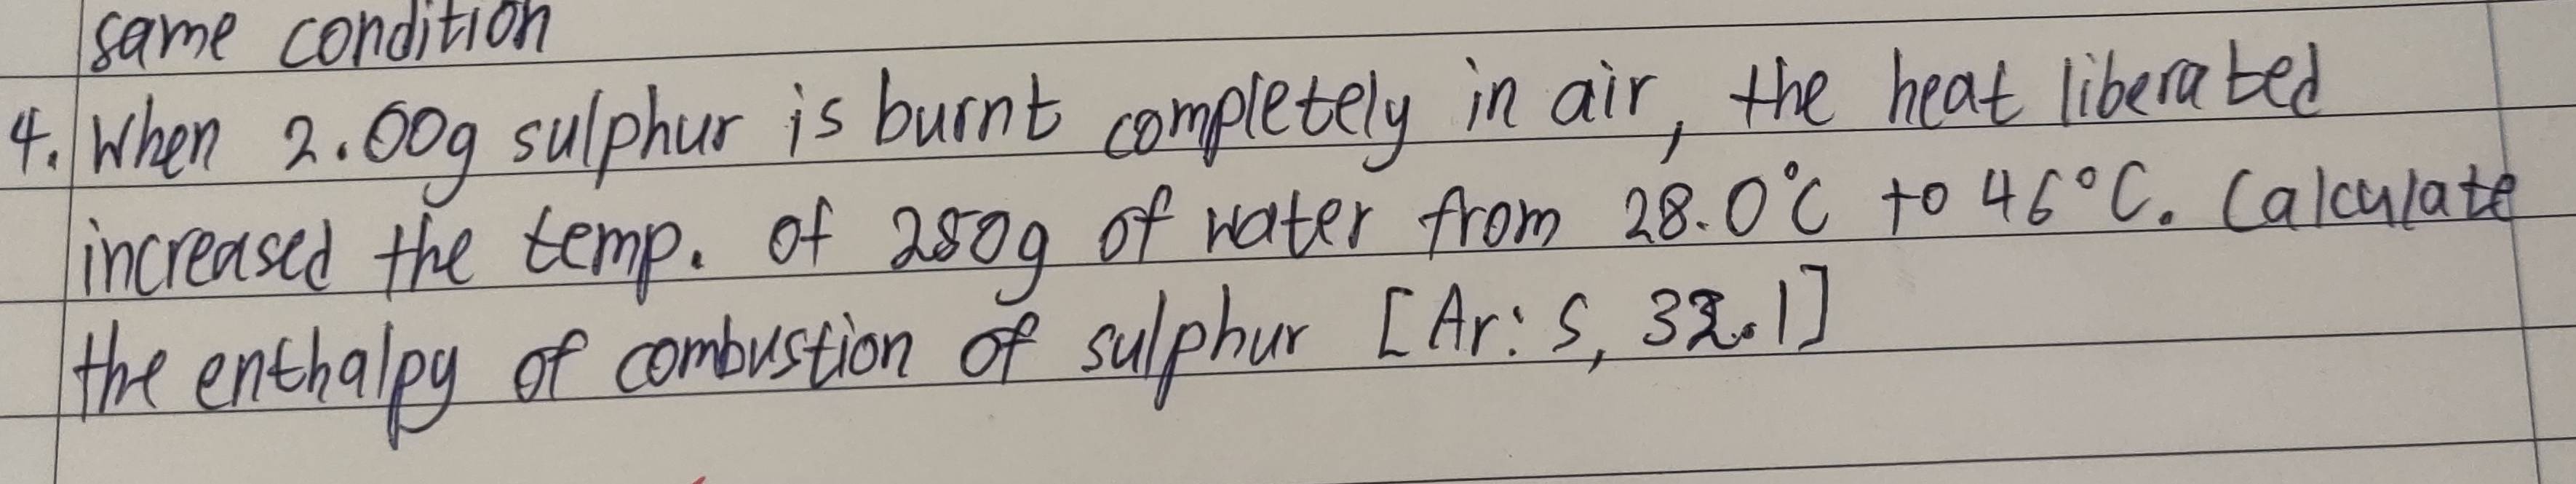 same condition
4. When 2.00g sulphur is burnt completely in air, the heat liberated
increased the temp. of 250g of water from 28.0°C to 46°C. Calculate
the enthalpy of combustion of sulphur [Ar: S, 32.1]